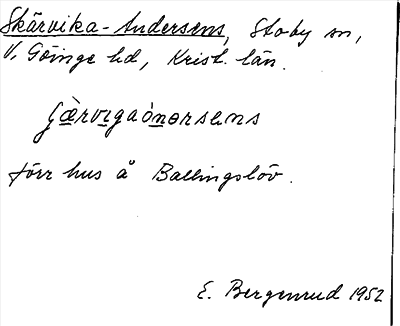 Skärvika-Andersens, Stoby sn,
V. Göinge hd, Krist. län.
förr hus å Ballingslöv.
E. Bergenrud 1952